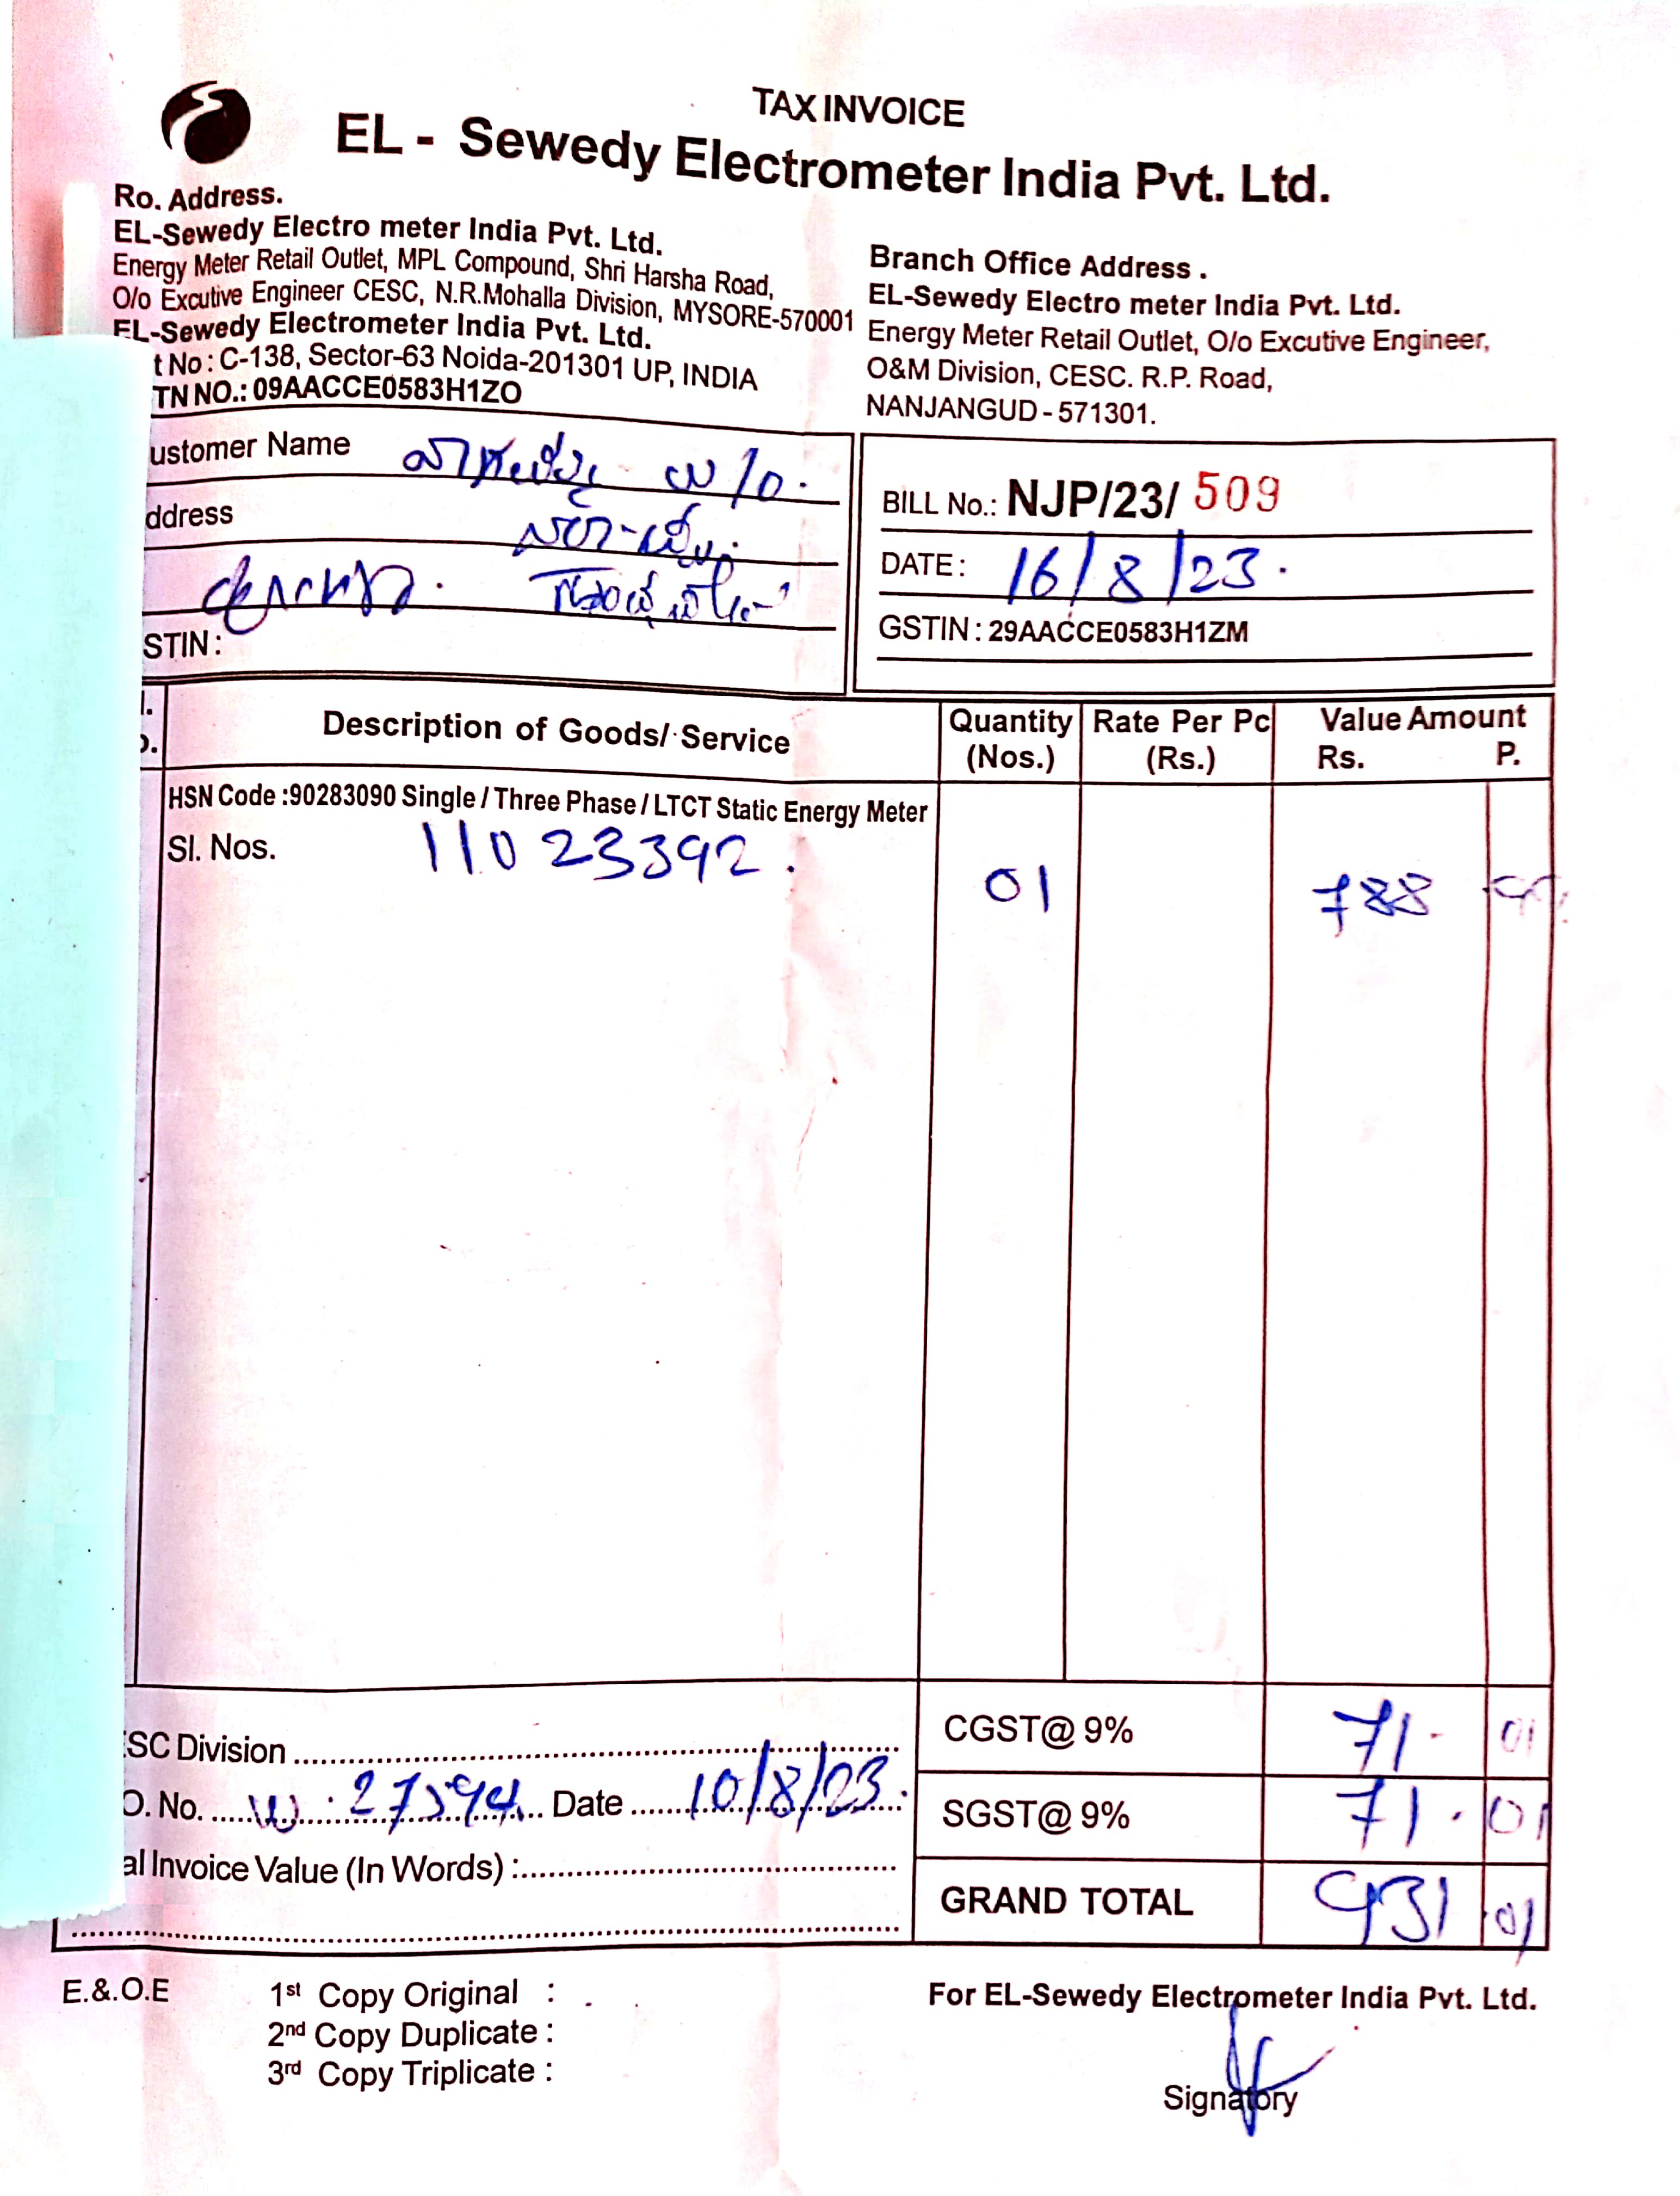 TAX INVOICE
EL - Sewedy Electrometer India Pvt. Ltd.
Ro. Address.
EL-Sewedy Electro meter India Pvt. Ltd.
Energy Meter Retail Outlet, MPL Compound, Shri Harsha Road,
O/o Excutive Engineer CESC, N.R.Mohalla Division, MYSORE-570001
EL-Sewedy Electrometer India Pvt. Ltd.
t No : C-138, Sector-63 Noida-201301 UP, INDIA
TN NO.: 09AACCE0583H1ZO
Branch Office Address .
EL-Sewedy Electro meter India Pvt. Ltd.
Energy Meter Retail Outlet, O/o Excutive Engineer,
O&M Division, CESC. R.P. Road,
NANJANGUD - 571301.
ustomer Name
ddress
STIN :
BILL No.: NJP/23/ 509
DATE : 16/8/23.
GSTIN : 29AACCE0583H1ZM
Description of Goods/ Service
Quantity (Nos.)
Rate Per Pc (Rs.)
Value Amount
Rs. P.
HSN Code :90283090 Single / Three Phase / LTCT Static Energy Meter
Sl. Nos. 11023392.
01 788
SC Division
O. No. Date 10/8/23.
al Invoice Value (In Words) :
CGST@ 9% 71 - 01
SGST@ 9% 71 . 01
GRAND TOTAL 931 01
E.&.O.E
1st Copy Original :
2nd Copy Duplicate :
3rd Copy Triplicate :
For EL-Sewedy Electrometer India Pvt. Ltd.
Signatory